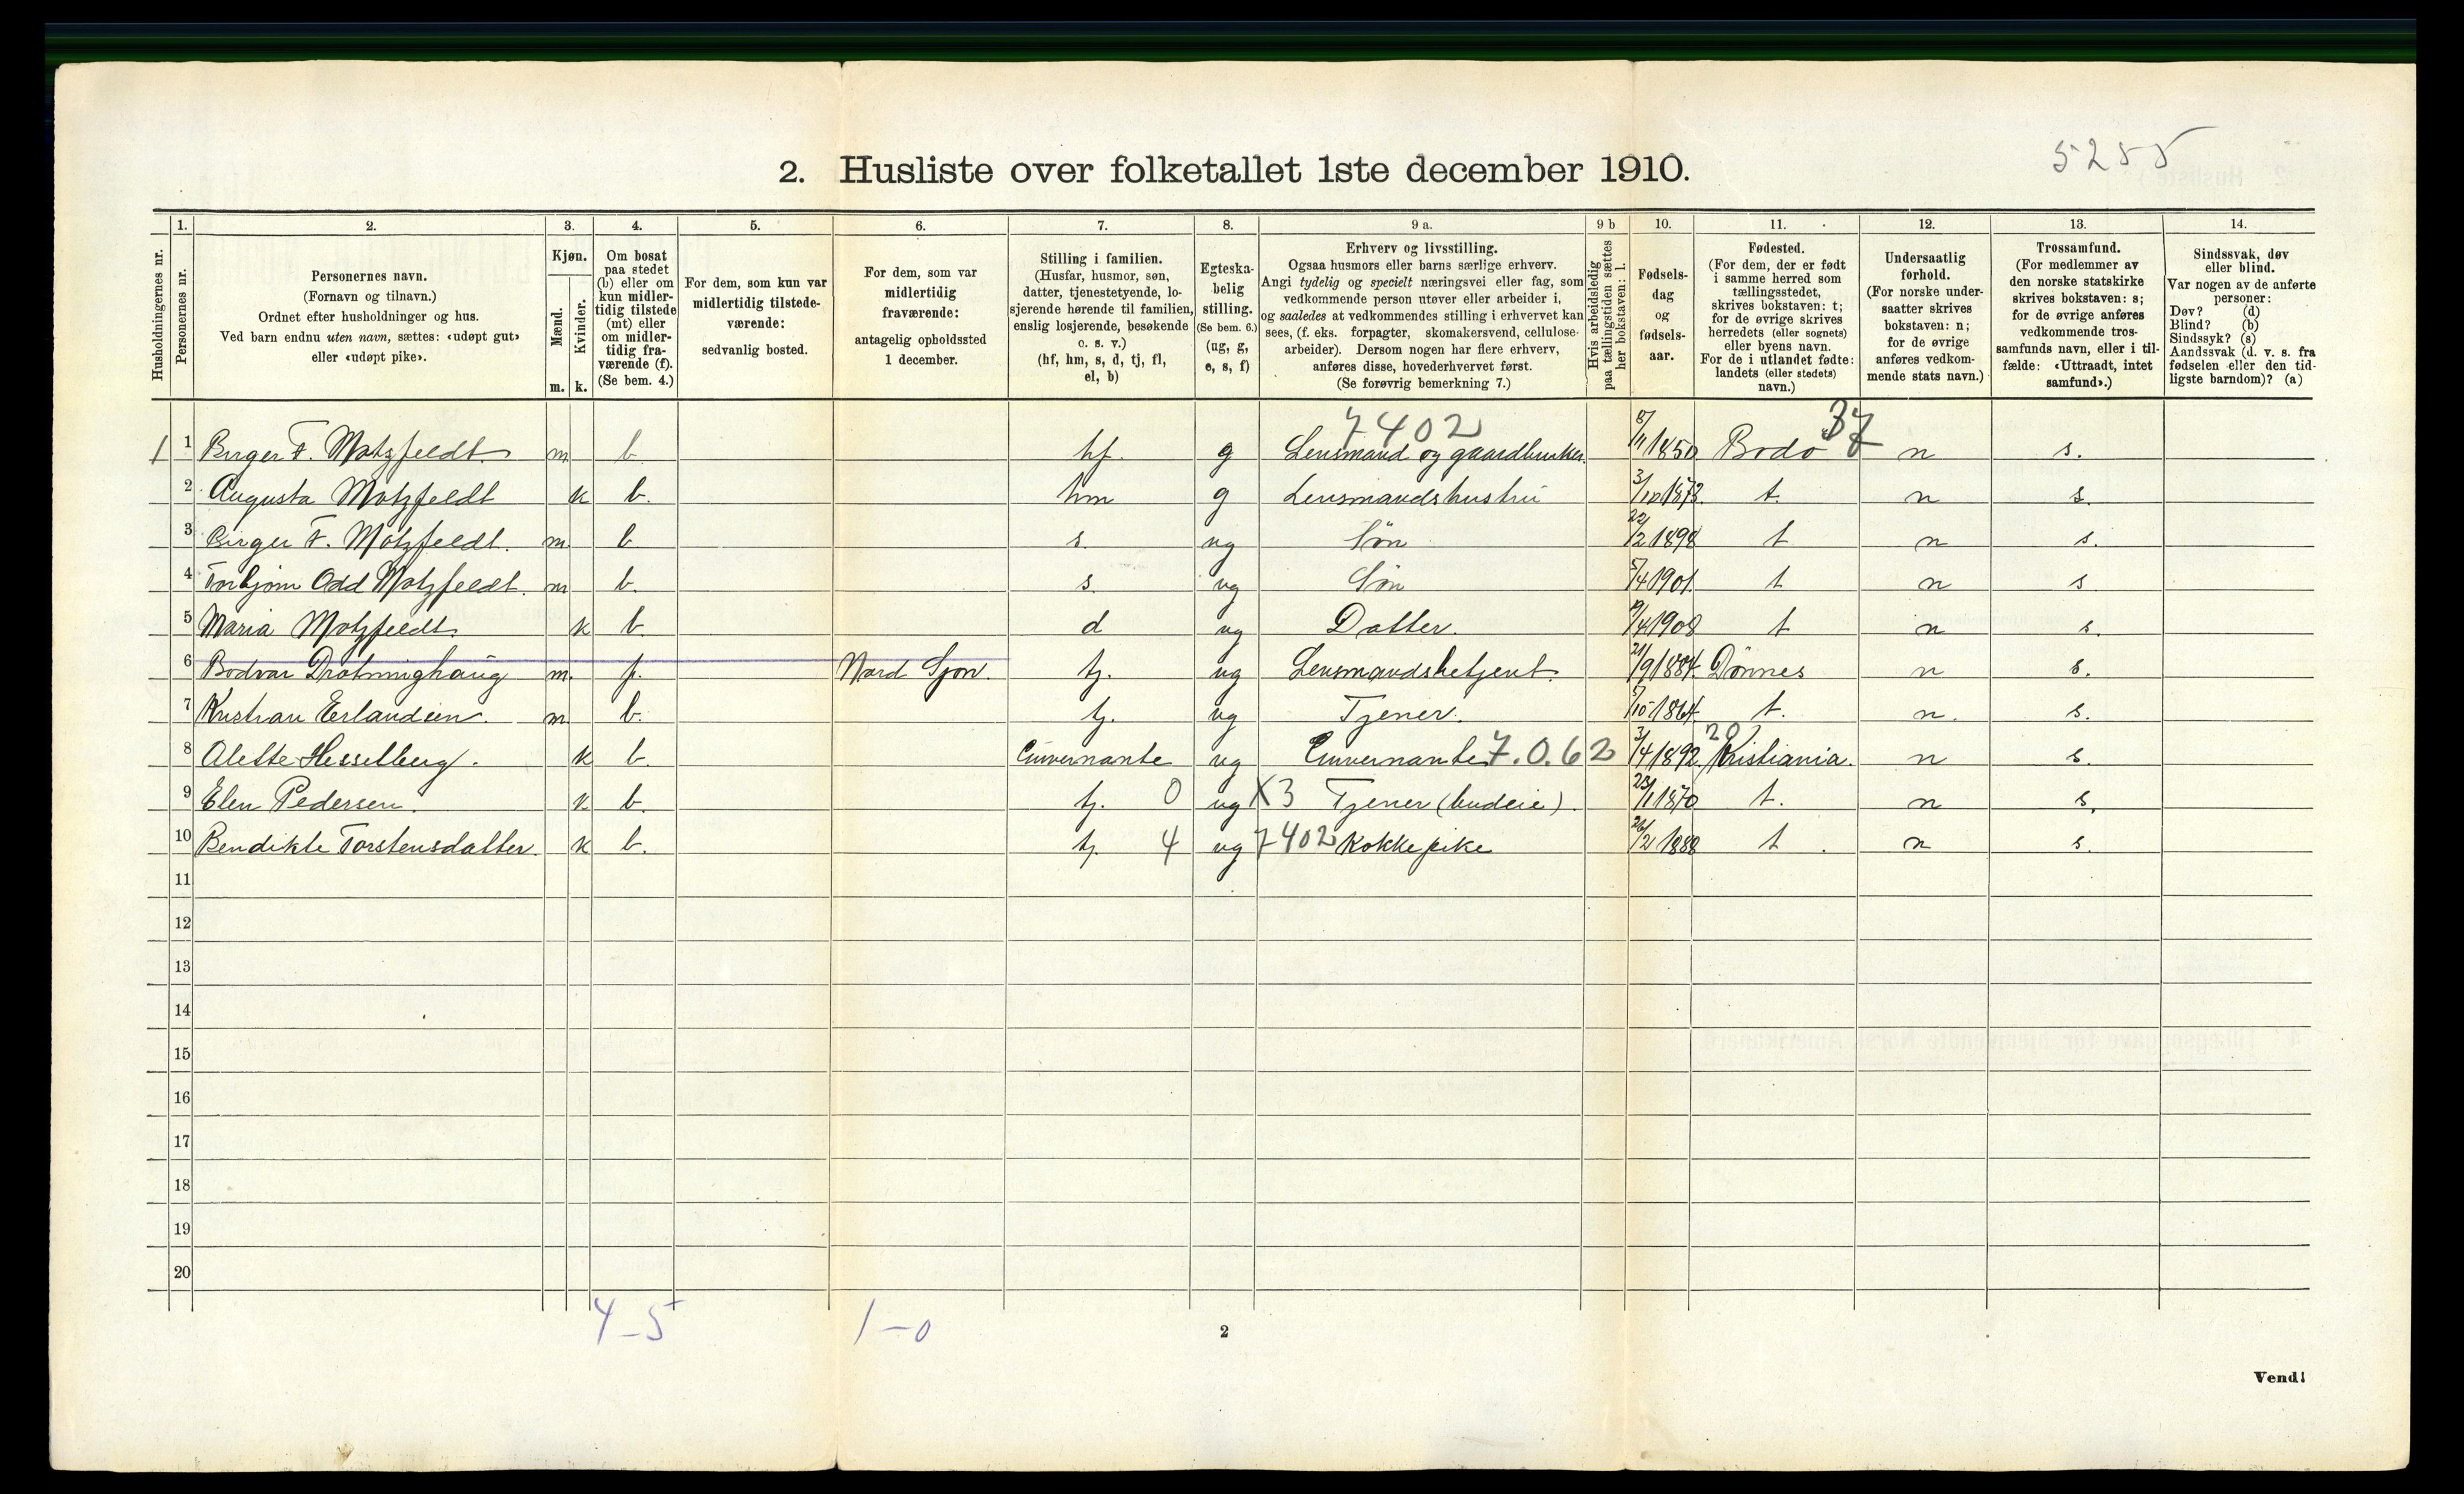 5255
2. Husliste over folketallet 1ste december 1910.
1. 2. 3. 4. 5. 6. 7. 8. 9 a. 9 b 10. 11. 12. 13. 14.
Husholdningernes nr.
Personernes nr.
Personernes navn.
(Fornavn og tilnavn.)
Ordnet efter husholdninger og hus.
Ved barn endnu uten navn, sættes: «udøpt gut»
eller «udøpt pike».
Kjøn.
Mænd.
Kvinder.
m. k.
Om bosat
paa stedet
(b) eller om
kun midler-
tidig tilstede
(mt) eller
om midler-
tidig fra-
værende (f).
(Se bem. 4.)
For dem, som kun var
midlertidig tilstede-
værende:
sedvanlig bosted.
For dem, som var
midlertidig
fraværende:
antagelig opholdssted
1 december.
Stilling i familien.
(Husfar, husmor, søn,
datter, tjenestetyende, lo-
sjerende hørende til familien,
enslig losjerende, besøkende
o. s. v.)
(hf, hm, s, d, tj, fl,
el, b)
Egteska-
belig
stilling.
(Se bem. 6.)
(ug, g,
e, s, f)
Erhverv og livsstilling.
Ogsaa husmors eller barns særlige erhverv.
Angi tydelig og specielt næringsvei eller fag, som
vedkommende person utøver eller arbeider i,
og saaledes at vedkommendes stilling i erhvervet kan
sees, (f. eks. forpagter, skomakersvend, cellulose-
arbeider). Dersom nogen har flere erhverv,
anføres disse, hovederhvervet først.
(Se forøvrig bemerkning 7.)
Hvis arbeidsledig
paa tællingstiden sættes
her bokstaven: l.
Fødsels-
dag
og
fødsels-
aar.
Fødested.
(For dem, der er født
i samme herred som
tællingsstedet,
skrives bokstaven: t;
for de øvrige skrives
herredets (eller sognets)
eller byens navn.
For de i utlandet fødte:
landets (eller stedets)
navn.)
Undersaatlig
forhold.
(For norske under-
saatter skrives
bokstaven: n;
for de øvrige
anføres vedkom-
mende stats navn.)
Trossamfund.
(For medlemmer av
den norske statskirke
skrives bokstaven: s;
for de øvrige anføres
vedkommende tros-
samfunds navn, eller i til-
fælde: «Uttraadt, intet
samfund».)
Sindssvak, døv
eller blind.
Var nogen av de anførte
personer:
Døv? (d)
Blind? (b)
Sindssyk? (s)
Aandssvak (d. v. s. fra
fødselen eller den tid-
ligste barndom)? (a)
7402 37
1 1 Birger F. Motzfeldt m b. hf. g Lensmand og gaardbruker. 5/11 1850 Bodø n s.
2 Augusta Motzfeldt k b. hm g Lensmandshustru 3/10 1873. t. n s.
3 Birger F. Motzfeldt. m. b. s. ug Søn 22/2 1898 t n s.
4 Torbjørn Odd Motzfeldt. m b. s. ug Søn 5/4 1901. t n s
5 Maria Motzfeldt. k b. d ug Datter. /4 1908 t n s.
6 Bodvar Drotninghaug m. f. Nord Sjon. tj. ug Lensmandsbetjent. 21/9 1884. Dønnes n s.
7 Kristian Erlandsen. m b. tj. ug Tjener. 5/10 1864. t. n. s.
20
8 Alette Hesselberg. k b. Guvernante ug Guvernante 7.0.62 3/4 1892. Kristiania. n s.
9 Elen Pedersen. k b. tj. 0 ug X3 Tjener (budeie). 23/1 1870 t. n s.
10 Bendikte Torstensdatter. k b. tj. 4 ug 7402 Kokkepike 26/2 1888 t. n s.
11
12
13
14
15
16
17
18
19
20
4-5 1-0
2
Vend!